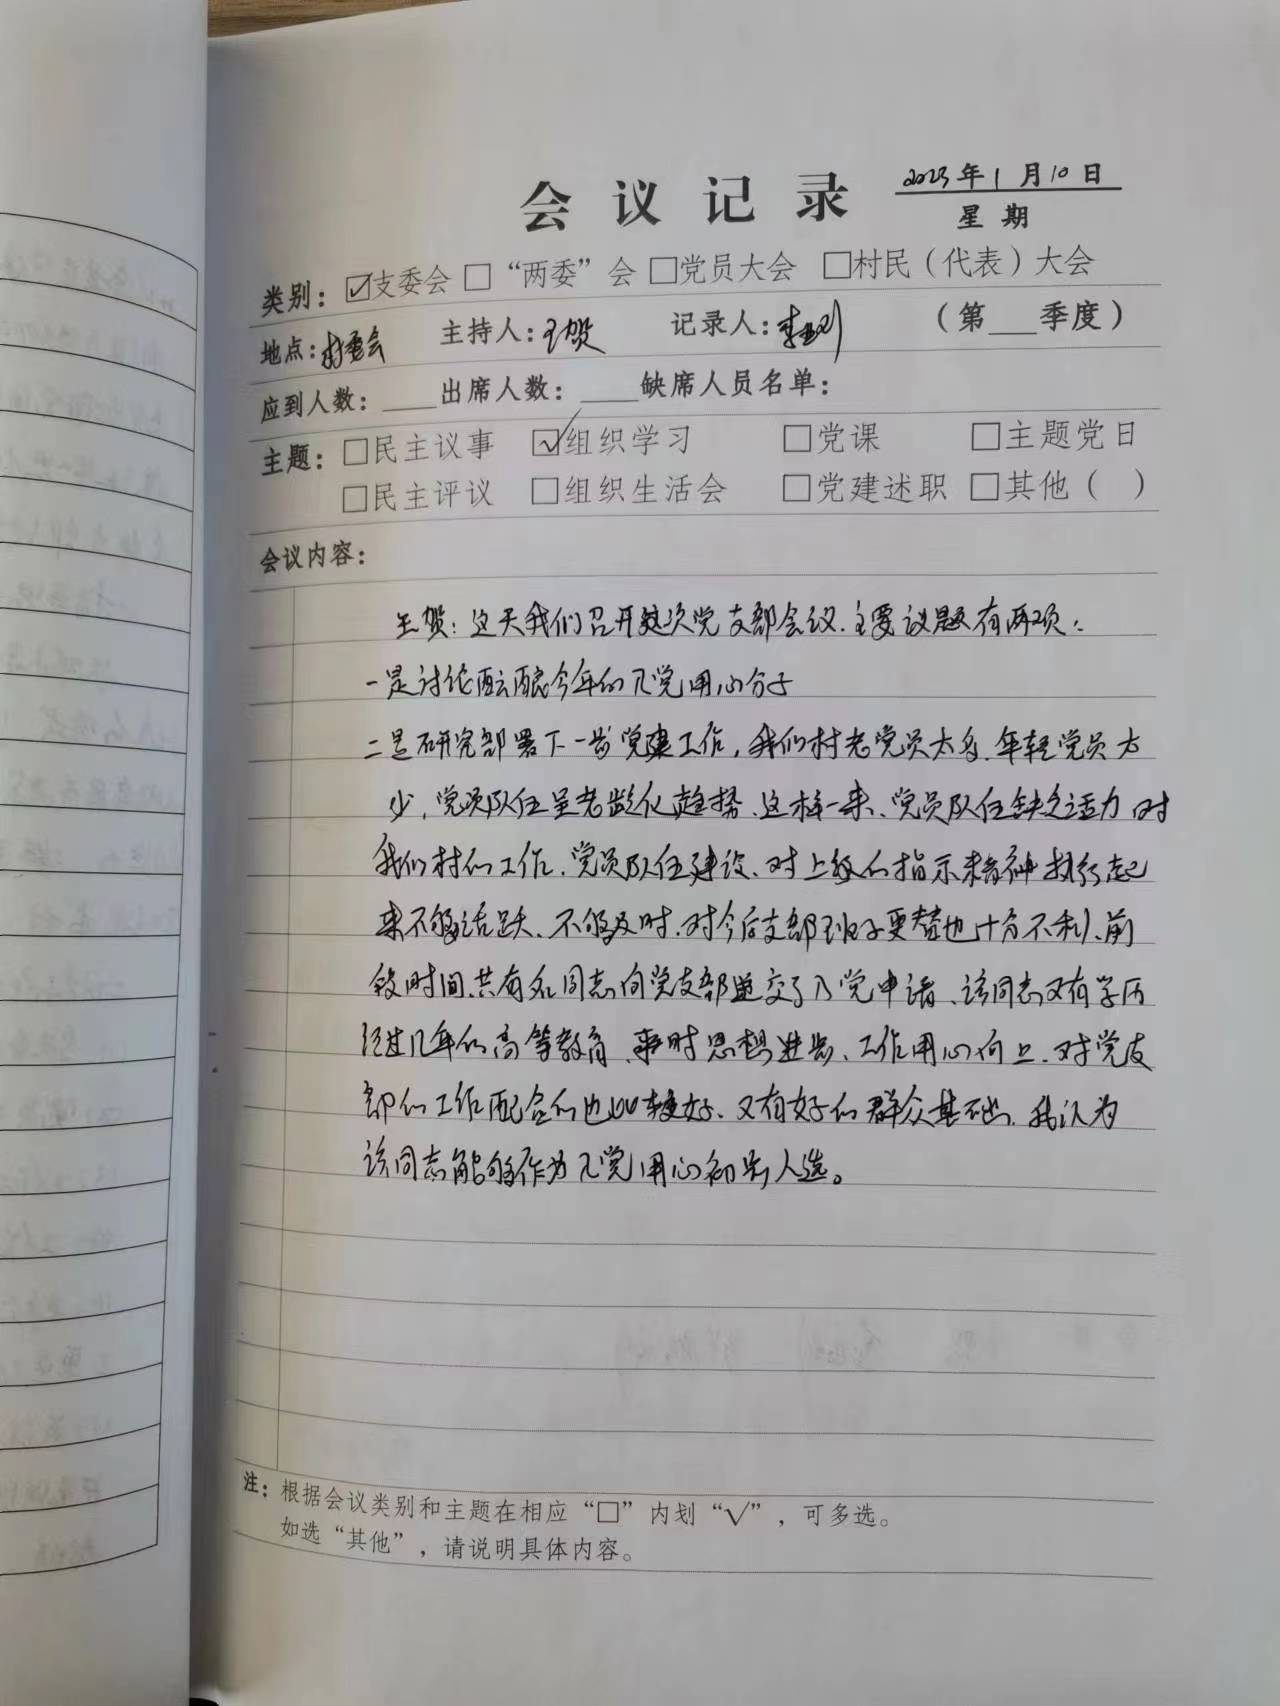 会议记录
2023年1月10日
星期
类别：☑支委会 □“两委”会 □党员大会 □村民（代表）大会
地点：村委会 主持人：王贺 记录人：李 （第___季度）
应到人数：____出席人数：____缺席人员名单：
主题：□民主议事 ☑组织学习 □党课 □主题党日
□民主评议 □组织生活会 □党建述职 □其他（ ）
会议内容：
王贺：这天我们召开这次党支部会议.主要议题有两项：
一是讨论酝酿今年的入党用心分子
二是研究部署下一步党建工作，我们村老党员太多.年轻党员太
少，党员队伍呈老龄化趋势、这样一来、党员队伍缺乏活力 对
我们村的工作、党员队伍建设、对上级的指示精神执行起
来不够活跃、不够及时.对今后支部班子更替也十分不利、前
段时间.共有名同志向党支部递交了入党申请、该同志又有学历
经过几年的高等教育、 思想进步、工作用心向上.对党支
部的工作配合的也比较好.又有好的群众基础.我认为
该同志能够作为入党用心初步人选。
注：根据会议类别和主题在相应“□”内划“√”，可多选。
如选“其他”，请说明具体内容。